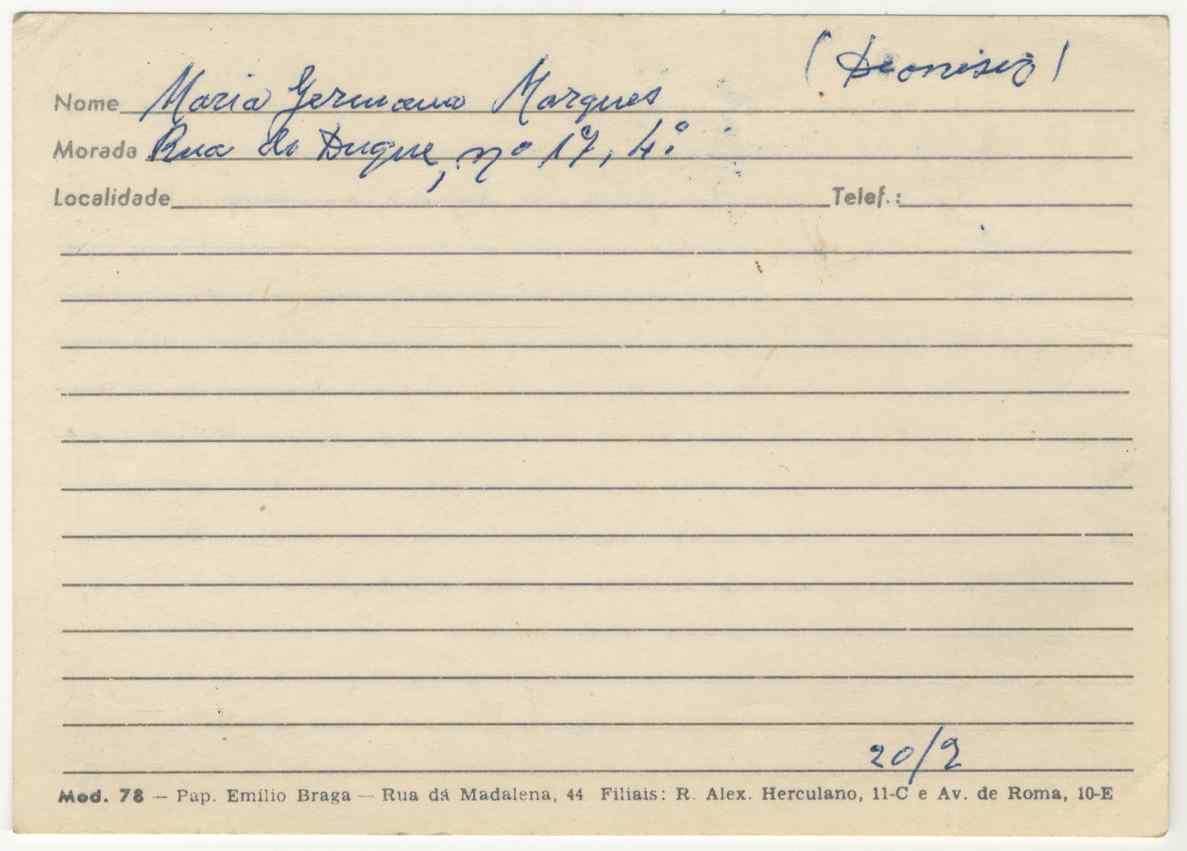 (Dionisio)
Nome Maria Germana Marques
Morada Rua do Duque, nº 17, 4.º
Localidade Telef.:
20/2
Mod. 78 — Pap. Emílio Braga — Rua dá Madalena, 44 Filiais: R. Alex. Herculano, 11-C e Av. de Roma, 10-E